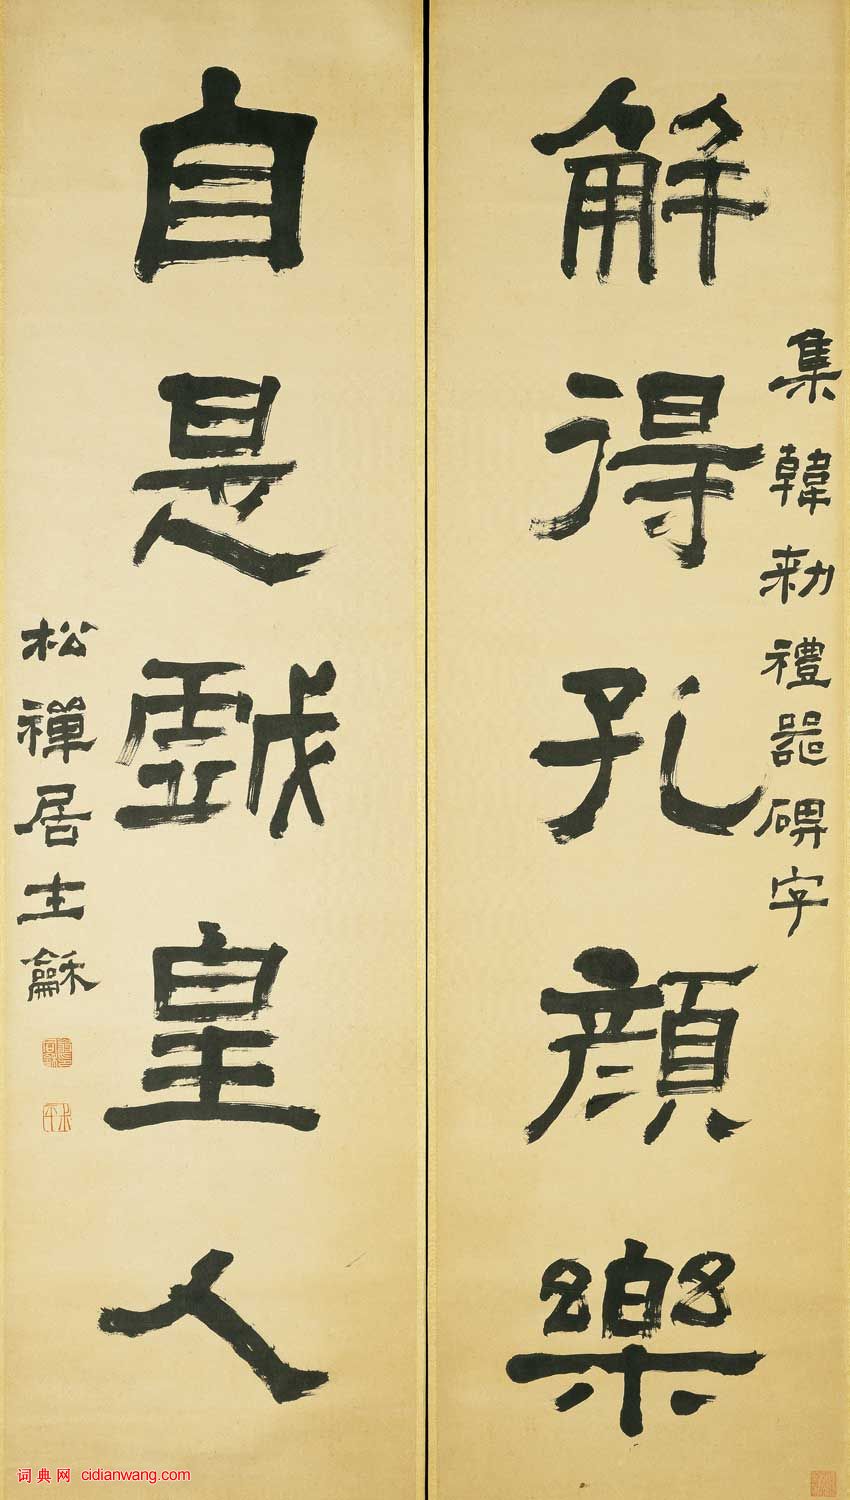 解得孔顏樂
集韓勑禮器碑字
自是戲皇人
松禪居士龢
词典网 cidianwang.com